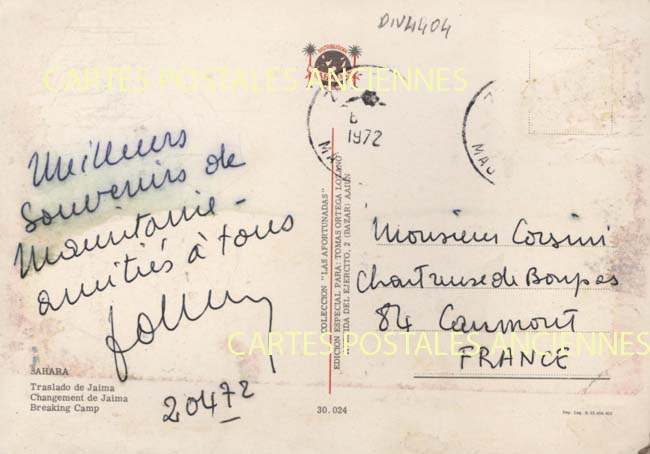 DIV4404
DISTRIBUTION
CARTES POSTALES ANCIENNES
6
1972
Meilleurs
souvenirs de
Mauritanie -
amitiés à tous
20472
Monsieur Corsini
Chartreuse de Bonpas
84 Caumont
FRANCE
CARTES POSTALES ANCIENNES
COLECCION "LAS AFORTUNADAS"
EDICION ESPECIAL PARA: TOMAS ORTEGA LOZANO
DEL EJERCITO, 2 (BAZAR) AAIUN
SAHARA
Traslado de Jaima
Changement de Jaima
Breaking Camp
30.024